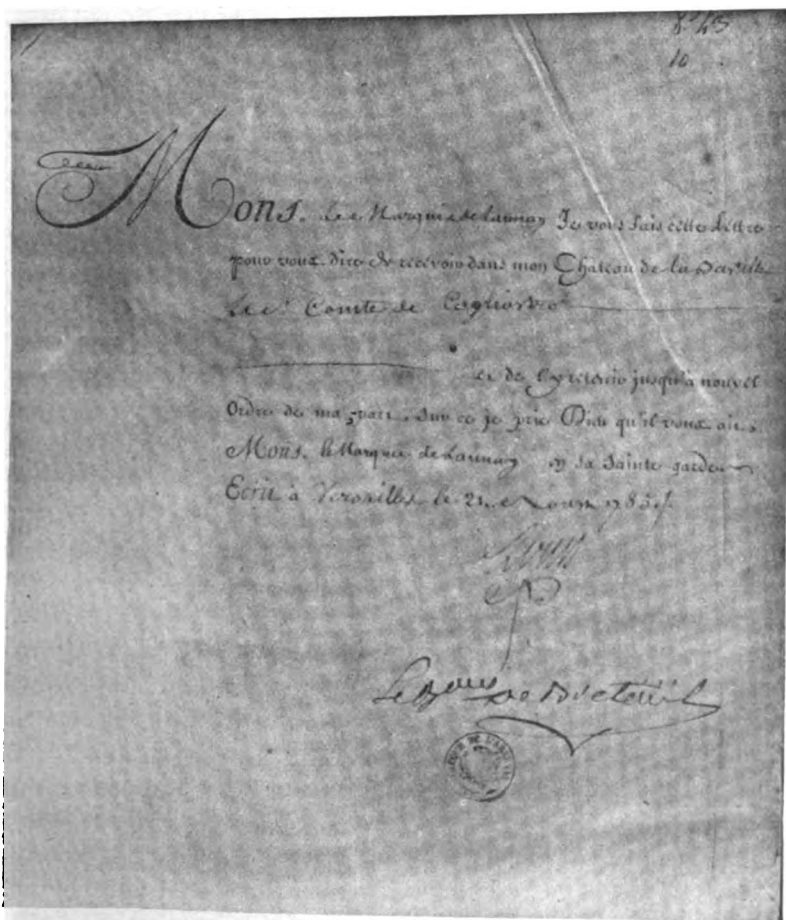 10
Mons. Le Marquis de Launay Je vous fais cette Lettre
pour vous dire de recevoir dans mon Château de la Bastille
Le s.r Comte de Cagliostro
et de l'y retenir jusqu'à nouvel
Ordre de ma part. Sur ce je prie Dieu qu'il vous ait,
Mons. le Marquis de Launay en sa Sainte garde
Ecrit à Versailles le 21 Aoust 1785
Louis
Le Bon De Breteuil